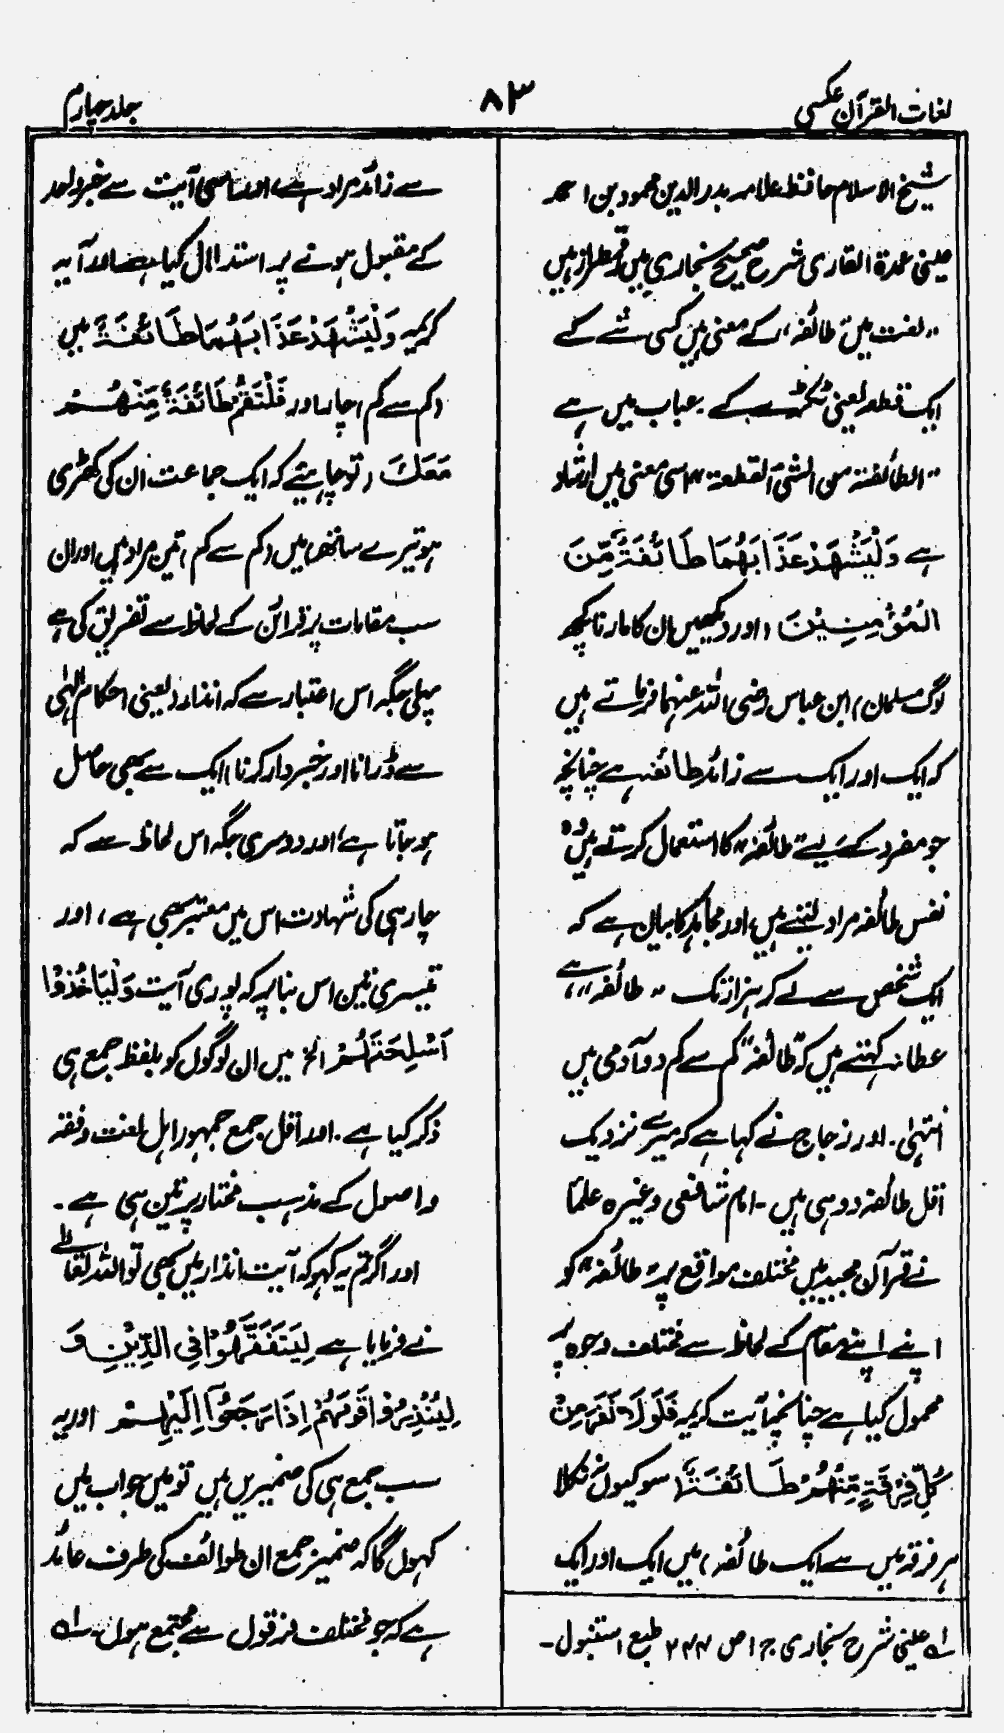 لغات القرآن عکسی
۸۳
جلد چہارم
شیخ الاسلام حافظ علامہ بدر الدین محمود بن احمد
عینی عمدۃ القاری شرح صحیح بخاری میں رقمطراز ہیں
”لغت میں ”طائفہ“ کے معنی ہیں کسی شئے کے
ایک قطعہ یعنی ٹکڑے کے۔ عباب میں ہے
”الطائفۃ من الشئ القطعۃ“ اسی معنی میں ارشاد
ہے وَلْيَشْهَدْ عَذَابَهُمَا طَائِفَةٌ مِّنَ
الْمُؤْمِنِيْنَ (اور دیکھیں ان کا مارنا کچھ
لوگ مسلمان) ابن عباس رضی اللہ عنہما فرماتے ہیں
کہ ایک اور ایک سے زائد طائفہ ہے چنانچہ
جو مفرد کے لیے ”طائفہ“ کا استعمال کرتے ہیں وہ
نفس طائفہ مراد لیتے ہیں، اور مجاہد کا بیان ہے کہ
ایک شخص سے لے کر ہزار تک ”طائفہ“ ہے،
عطاء کہتے ہیں کہ ”طائفہ“ کم سے کم دو آدمی ہیں
انتہیٰ۔ اور زجاج نے کہا ہے کہ میرے نزدیک
اقل طائفہ دو ہی ہیں۔ امام شافعی وغیرہ علماء
نے قرآن مجید میں مختلف مواقع پر ”طائفہ“ کو
اپنے اپنے مقام کے لحاظ سے مختلف وجوہ پر
محمول کیا ہے چنانچہ آیت کریمہ فَلَوْلَا نَفَرَ مِنْ
كُلِّ فِرْقَةٍ مِّنْهُمْ طَائِفَةٌ (سو کیوں نہ نکلا
ہر فرقہ میں سے ایک طائفہ) میں ایک اور ایک
لہ عینی شرح بخاری ج ۱ ص ۲۴۴ طبع استنبول۔
سے زائد مراد ہے، اور اسی آیت سے خبر واحد
کے مقبول ہونے پر استدلال کیا ہے اور آیہ
کریمہ وَلْيَشْهَدْ عَذَابَهُمَا طَائِفَةٌ میں
(کم سے کم) چار اور فَلْتَقُمْ طَائِفَةٌ مِّنْهُمْ
مَعَكَ (تو چاہئیے کہ ایک جماعت ان کی کھڑی
ہو تیرے ساتھ) میں (کم سے کم) تین مراد ہیں اور ان
سب مقامات پر قرائن کے لحاظ سے تفریق کی ہے
پہلی جگہ اس اعتبار سے کہ انذار (یعنی احکام الٰہی
سے ڈرانا اور خبردار کرنا) ایک سے بھی حاصل
ہو جاتا ہے، اور دوسری جگہ اس لحاظ سے کہ
چار ہی کی شہادت اس میں معتبر بھی ہے، اور
تیسری میں اس بنا پر کہ پوری آیت وَلْيَاخُذُوْا
اَسْلِحَتَهُمْ الخ میں ان لوگوں کو بلفظ جمع ہی
ذکر کیا ہے۔ اور اقل جمع جمہور اہل لغت و فقہ
و اصول کے مذہب مختار پر تین ہی ہے۔
اور اگر تم یہ کہو کہ آیت انذار میں بھی تو اللہ تعالےٰ
نے فرمایا ہے لِيَتَفَقَّهُوْا فِي الدِّيْنِ وَ
لِيُنْذِرُوْا قَوْمَهُمْ اِذَا رَجَعُوْٓا اِلَيْهِمْ اور یہ
سب جمع ہی کی ضمیریں ہیں تو میں جواب میں
کہوں گا کہ ضمیر جمع ان طوائف کی طرف عائد
ہے کہ جو مختلف فرقوں سے مجتمع ہوں۔ لہ